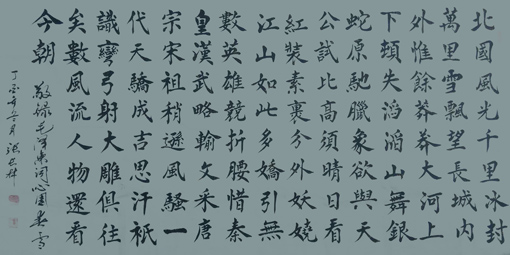 北國風光千里冰封
萬里雪飄望長城內
外惟餘莽莽大河上
下頓失滔滔山舞銀
蛇原馳臘象欲與天
公試比高須晴日看
紅裝素裹分外妖嬈
江山如此多嬌引無
數英雄競折腰惜秦
皇漢武略輸文采唐
宗宋祖稍遜風騷一
代天驕成吉思汗祇
識彎弓射大雕俱往
矣數風流人物還看
今朝
敬録毛澤東詞沁園春雪